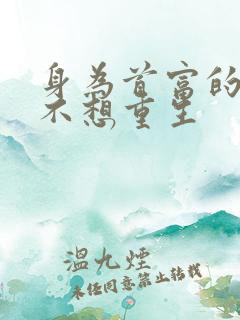 身为首富的
不想重生
温九煙
未经同意禁止转载